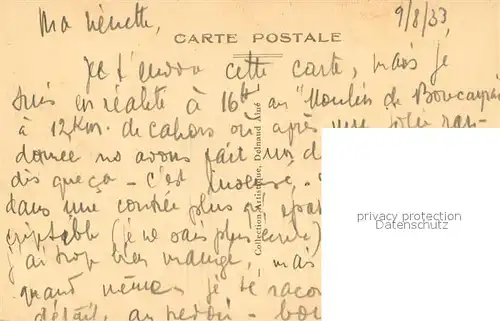 Ma nénette,
9/8/33
CARTE POSTALE
Je t'envoie cette carte, mais je
suis en réalité à 16h au "Moulin de
à 12 Km. de Cahors où après une jolie ran-
donnée ns avons fait un d
dis que ça - c'est
dans une contrée plus que
(je ne sais plus écrire)
j'ai trop bien mangé, mais
quand même je te raco
détail, au revoir - bon
Collection Artistique, Delnaud Aîné
privacy protection